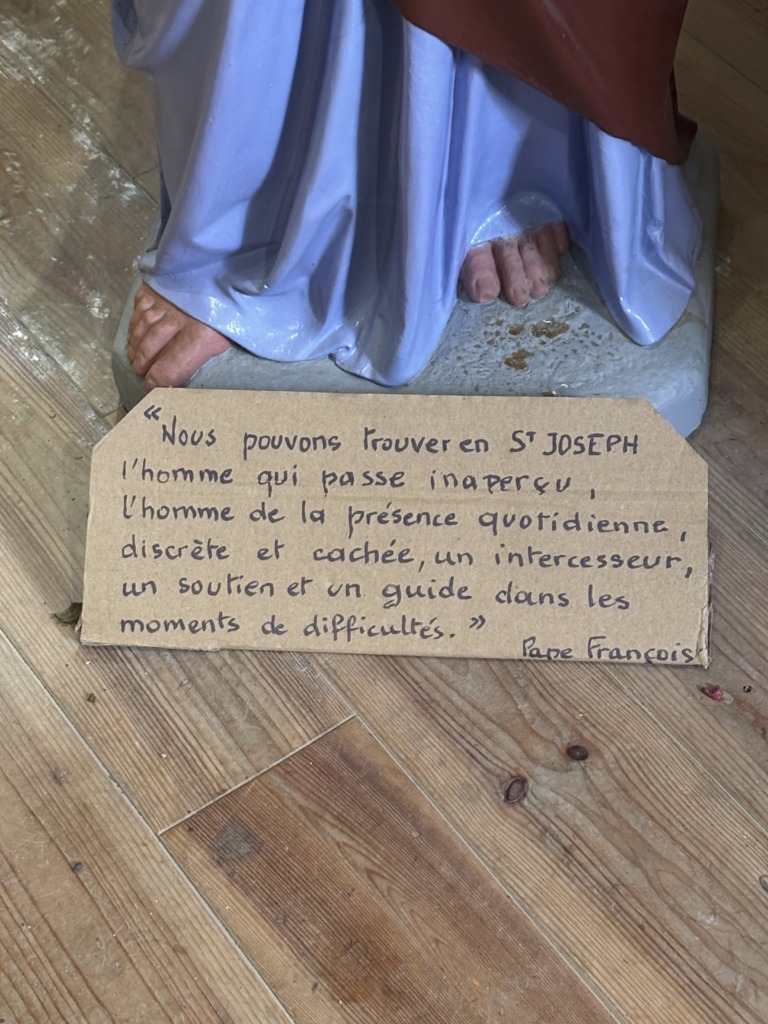 “Nous pouvons trouver en ST JOSEPH
l'homme qui passe inaperçu,
l'homme de la présence quotidienne,
discrète et cachée, un intercesseur,
un soutien et un guide dans les
moments de difficultés.”
Pape François